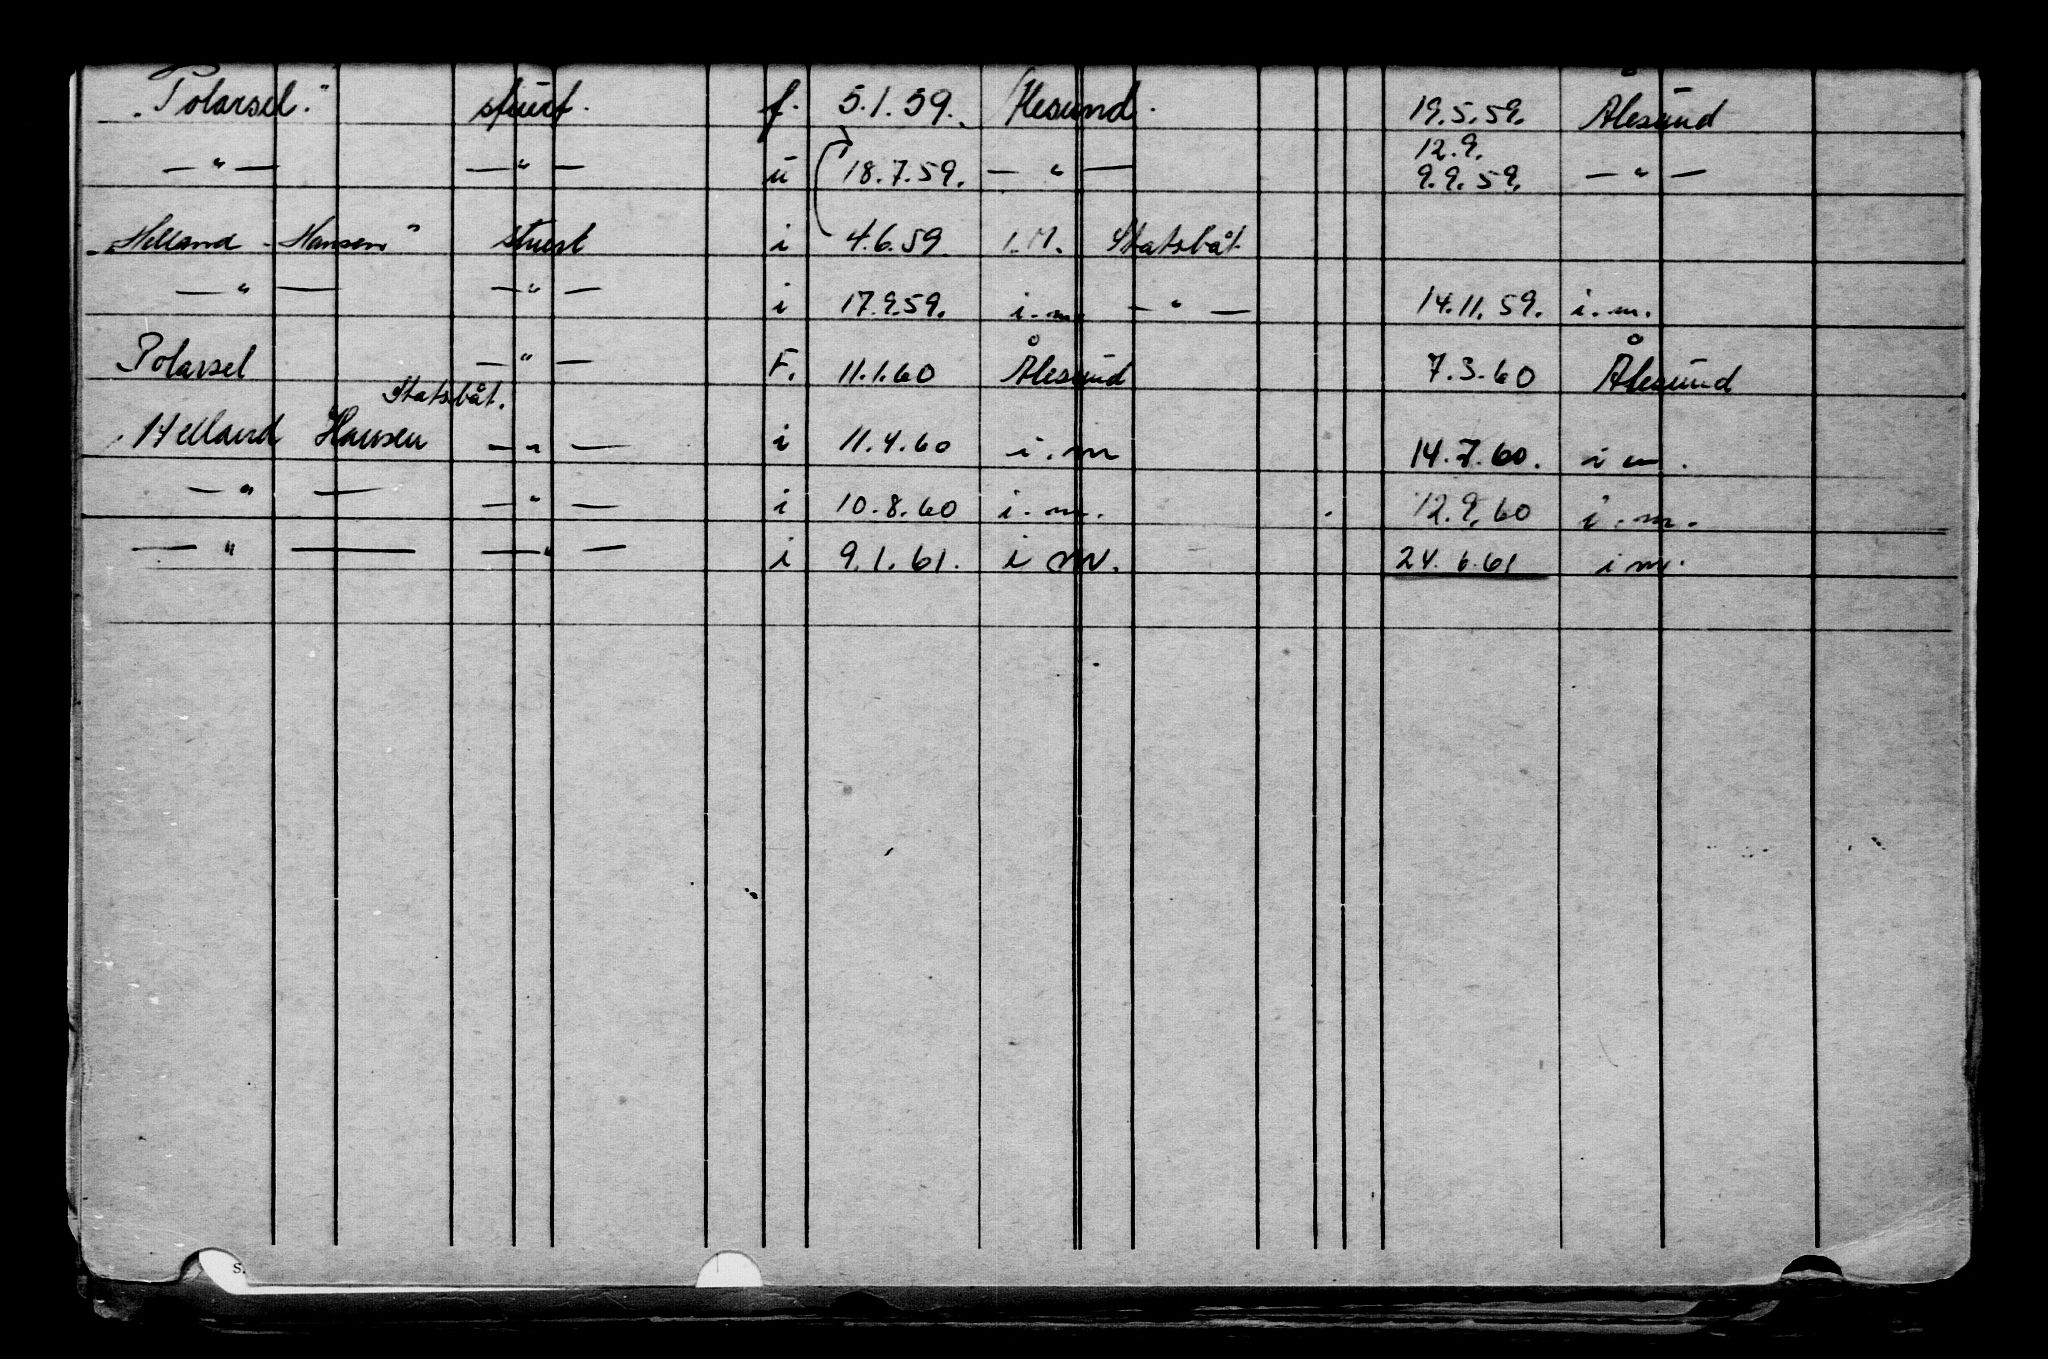 „Polarsel." stuert. f. 5.1.59. Ålesund. 19.5.59. Ålesund
— " — — " — u 18.7.59. — " — 12.9. 9.9.59. — " —
„Helland-Hansen" stuert i 4.6.59. I.M. Statsbåt
— " — — " — i 17.9.59. i.m. — " — 14.11.59. i.m.
Polarsel — " — F. 11.1.60 Ålesund 7.3.60 Ålesund
Statsbåt.
Helland Hansen — " — i 11.4.60 i.m 14.7.60. i m.
— " — — " — i 10.8.60 i.m. 12.9.60 i.m.
— " — — " — i 9.1.61. i m. 24.6.61 i m.
s.